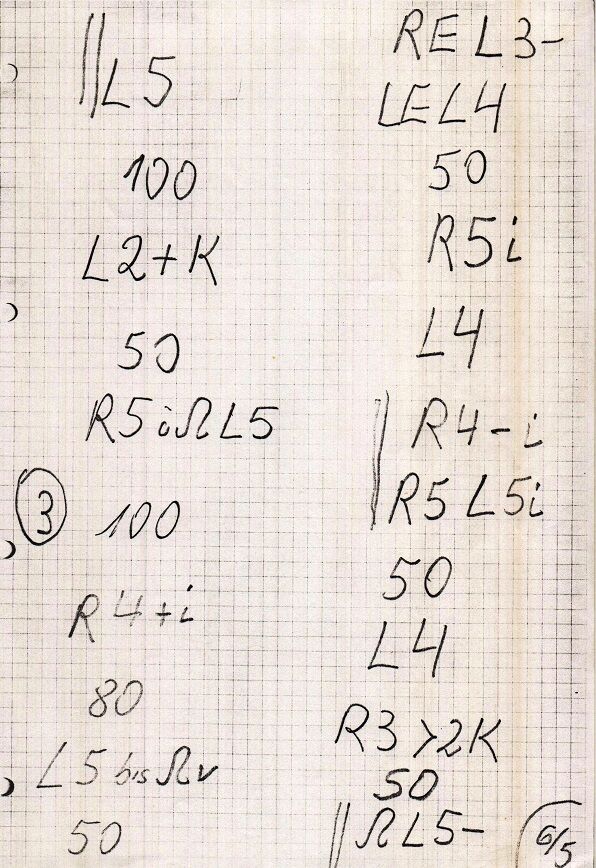 L5
100
L2+K
50
R5iΩL5
③ 100
R4+i
80
L5 bis Ωv
50
REL3-
LEL4
50
R5i
L4
R4-i
R5 L5i
50
L4
R3>2K
50
ΩL5-
6/5